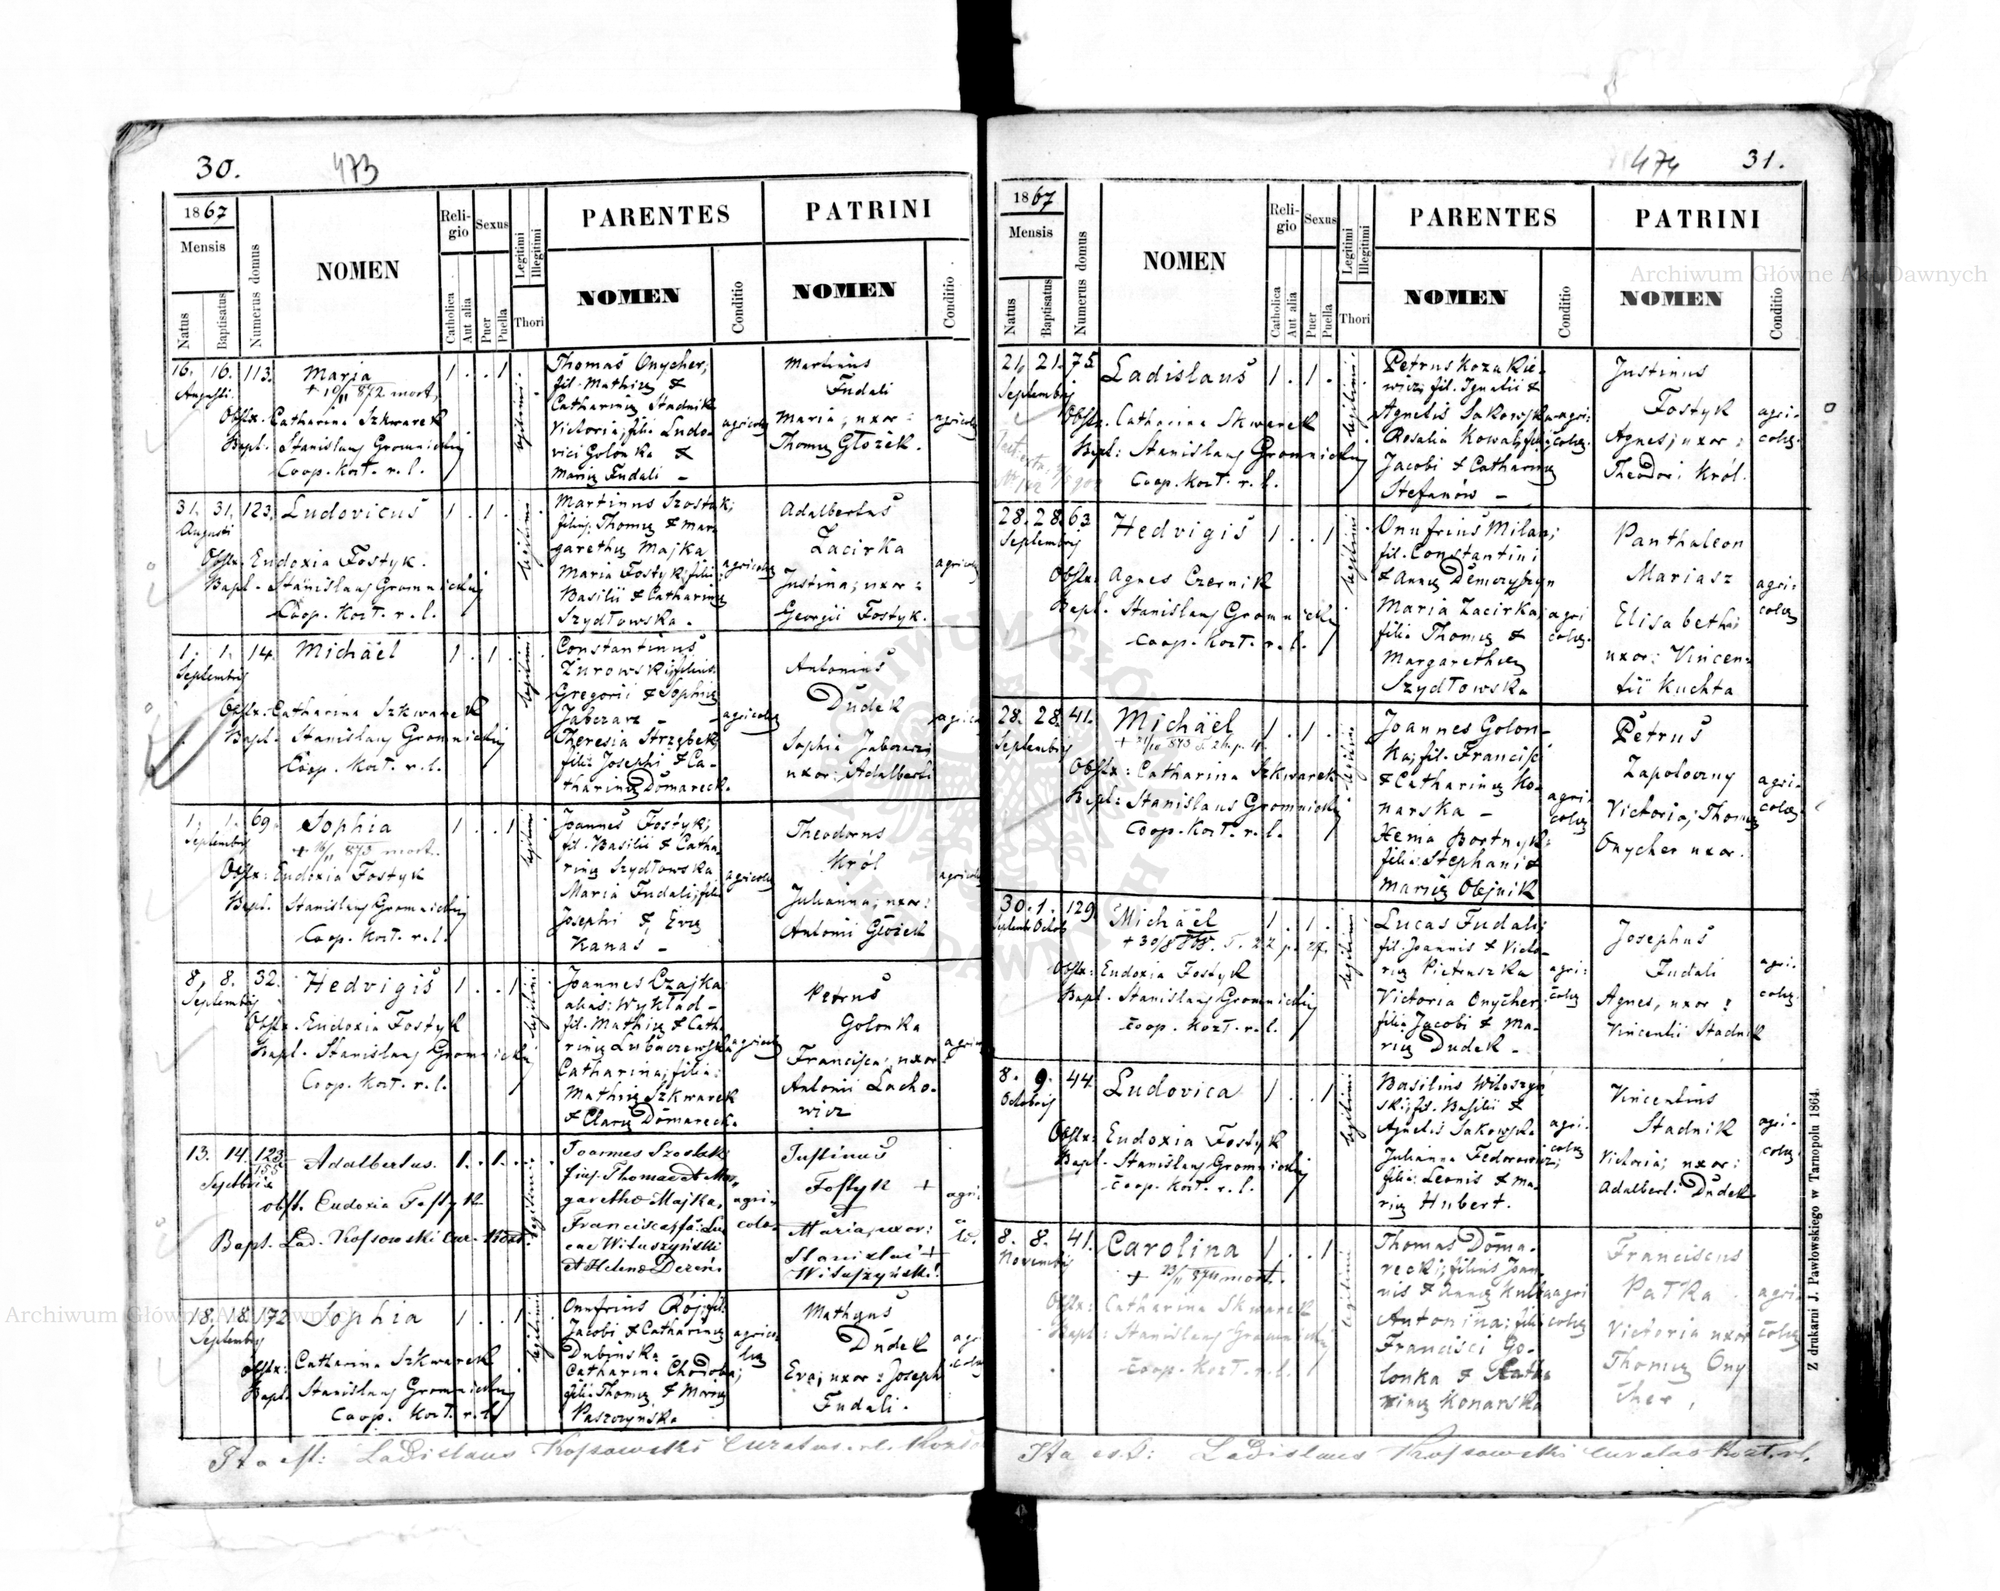 30.
473
1867
Mensis
Natus
Baptisatus
Numerus domus
NOMEN
Religio
Catholica
Aut alia
Sexus
Puer
Puella
Legitimi
Illegitimi
Thori
PARENTES
NOMEN
Conditio
PATRINI
NOMEN
Conditio
16. 16. 113. Maria 1 . . 1
Augusti
mort.
Obstx. Catharina Szkwarek
Bapt. Stanislaus Gromnicki
Coop. Kozł. r. l.
legitimi
Thomas Onycher,
fil. Mathiæ &
Catharinæ Stadnik
Victoria, filia Ludo-
vici Golonka &
Mariæ Fudali –
agricolæ
Martinus
Fudali
Maria, uxor:
Thomæ Głożek.
agricolæ
31. 31. 123. Ludovicus 1 . 1 .
Augusti
Obstx. Eudoxia Fostyk.
Bapt. Stanislaus Gromnicki
Coop. Kozł. r. l.
legitimi
Martinus Szostak;
filius Thomæ & Mar-
garethæ Majka
Maria Fostyk, filia
Basilii & Catharinæ
Szydłowska.
agricolæ
Adalbertus
Zacirka
Justina, uxor:
Georgii Fostyk.
agricolæ
1. 1. 14. Michaël 1 . 1 .
Septembris
Obstx. Catharina Szkwarek
Bapt. Stanislaus Gromnicki
Coop. Kozł. r. l.
legitimi
Constantinus
Żurowski, filius
Gregorii & Sophiæ
Jabczarz –
Theresia Strzębek
filia Josephi & Ca-
tharinæ Domareck.
agricolæ
Antonius
Dudek
Sophia
uxor: Adalberti
1. 1. 69. Sophia 1 . . 1
Septembris
mort.
Obstx: Eudoxia Fostyk
Bapt. Stanislaus Gromnicki
Coop. Kozł. r. l.
legitimi
Joannes Fostyk;
fil. Basilii & Catha-
rinæ Szydłowska
Maria Fudali, fil.
Josephi & Evæ
Kanas –
agricolæ
Theodorus
Król
Julianna, uxor:
Antonii Głożek
agricolæ
8. 8. 32. Hedvigis 1 . . 1
Septembris
Obstx. Eudoxia Fostyk
Bapt. Stanislaus Gromnicki
Coop. Kozł. r. l.
legitimi
Joannes Czajka
alias: Wykład –
fil. Mathiæ & Catha-
rinæ Lubaczewska
Catharina, filia:
Mathiæ Szkwarek
& Claræ Domareck.
agricolæ
Petrus
Golonka
Francisca, uxor
Antonii Lacho-
wicz
13. 14. 123 Adalbertus. 1 . 1 .
155
obst. Eudoxia Fostyk
Bapt. Lad. Kossowski Cur. Kozł.
legitimi
Joannes Szostak
Thomae & Mar-
garethæ Majka,
Francisca, fa: Lu-
cae Wituszyński
& Helenæ Dereń
agri-
colæ
Justinus
Fostyk +
Maria, uxor:
Stanislai +
Wituszyński!
18. 18. 172 Sophia 1 . . 1
Septembris
Obstx: Catharina Szkwarek
Bapt. Stanislaus Gromnicki
Coop. Kozł. r. l.
legitimi
Onufrius Rój, fil.
Jacobi & Catharinæ
Dubinska
Catharina Chodoba;
filia Thomæ & Mariæ
Paszczyńska
agrico-
læ
Mathæus
Dudek
Eva, uxor: Joseph
Fudali.
Ita est: Ladislaus Kossowski Curatus r. l.
474
31.
1867
Mensis
Natus
Baptisatus
Numerus domus
NOMEN
Religio
Catholica
Aut alia
Sexus
Puer
Puella
Legitimi
Illegitimi
Thori
PARENTES
NOMEN
Conditio
PATRINI
NOMEN
Conditio
21. 21. 75 Ladislaus 1 . 1 .
Septembris
Obstx. Catharina Skwarek
Bapt: Stanislaus Gromnicki
Coop. Kozł. r. l.
legitimi
Petrus Kozakie-
wicz, fil. Ignatii &
Agnetis Sakowska
Rosalia Kowal, filia
Jacobi & Catharinæ
Stefanów –
agri-
colæ
Justinus
Fostyk
Agnes, uxor:
Theodori Król.
agri-
colæ
28. 28. 63. Hedvigis 1 . . 1
Septembris
Obstx: Agnes Czernik
Bapt. Stanislaus Gromnicki
Coop. Kozł. r. l.
legitimi
Onufrius Milan;
fil. Constantini
& Annæ Demczyszyn
Maria Zacirka,
filia Thomæ &
Margarethæ
Szydłowska
agri
colæ.
Panthaleon
Mariasz
Elisabetha
uxor: Vincen-
tii Kuchta
agri-
colæ
28. 28. 41. Michaël 1 . 1 .
Septembris
Obstx: Catharina Szkwarek
Bapt: Stanislaus Gromnicki
Coop. Kozł. r. l.
legitimi
Joannes Golon-
ka, fil. Francisci
& Catharinæ Ko-
narska –
Xenia Bortnyk:
filia: Stephani &
Mariæ Olejnik
agri-
colæ
Petrus
Zapotoczny
Victoria, Thomæ
Onycher uxor.
agri-
colæ
30. 1. 129. Michaël 1 . 1 .
Septembr. Octobr.
Obstx: Eudoxia Fostyk
Bapt. Stanislaus Gromnicki
Coop. Kozł. r. l.
legitimi
Lucas Fudali;
fil. Joannis & Victo-
riæ Pietruszka
Victoria Onycher
filia Jacobi & Ma-
riæ Dudek –
agri-
colæ
Josephus
Fudali
Agnes, uxor:
Vincentii Stadnik
agri-
colæ.
8. 9. 44. Ludovica 1 . . 1
Octobris
Obstx: Eudoxia Fostyk
Bapt. Stanislaus Gromnicki
Coop. Kozł. r. l.
legitimi
Basilius Witoszyń-
ski, fil. Basilii &
Agnetis Sakowska
Julianna Fedorowicz;
filia: Leonis & Ma-
riæ Hubert.
agri-
colæ
Vincentius
Stadnik
Victoria, uxor:
Adalberti Dudek
agri-
colæ
8. 8. 41. Carolina 1 . . 1
Novembris
mort.
Obstx: Catharina Skwarek
Bapt: Stanislaus Gromnicki
Coop. Kozł. r. l.
legitimi
Thomas Doma-
recki, filius Joan-
nis & Annæ Kulba
Antonina, filia
Francisci Go-
lonka & Catha-
rinæ Konarska
agri
colæ
Franciscus
Pałka
Victoria uxor
Thomæ Ony
cher,
agri-
colæ
Ita est: Ladislaus Kossowski Curatus Kozł. rl.
Z drukarni J. Pawłowskiego w Tarnopolu 1864.
Archiwum Główne Akt Dawnych
Archiwum Główne Akt Dawnych
ARCHIWUM GŁÓWNE AKT DAWNYCH